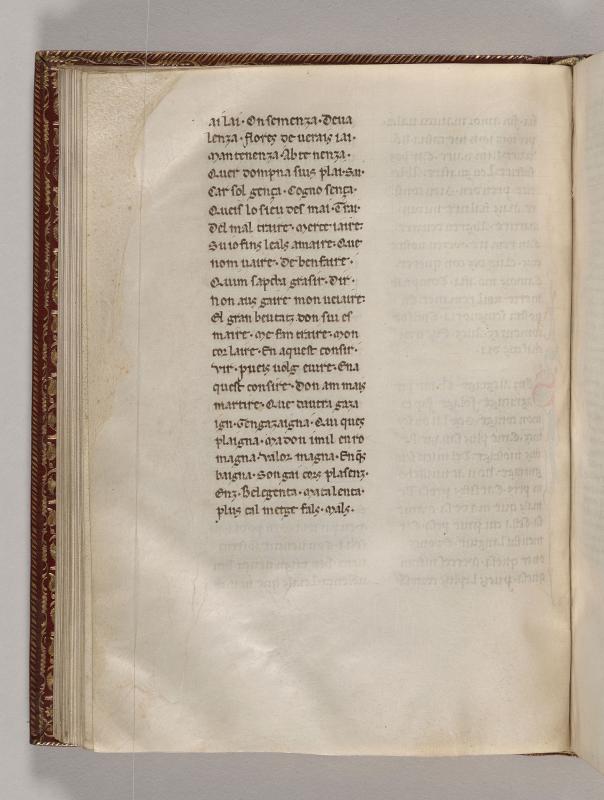 ai lai · On semenza · Deua
lenza · flores de uerais iai ·
Mantenenza · Abtenenza ·
Quer dompna sius plai · Su ·
Car sol genza · Cogno senza ·
Queis lo sieu oes mai · Trai ·
Del mal traire · Merce iaire ·
Su io fins leals amaire · Que
nom uaire · De benfaire ·
Quum sapcha grasir · Dir ·
Non aus gaire mon ueiaire ·
El gran beutatz don sui es
maire · Me fan traire · Mon
cor laire · En aquest consir ·
Vir · pueis uolg euire · Ena
quest consire · Don am mais
martire · Que dautra gaza
ign · Gengazaigna · Qui ques
plaigna · Ma don imil enro
magna · Valor magna · Enqs
baigna · Son gai cors plasenz ·
Enz · Belegenta · Matalenta ·
plus cil metge fals · Mals ·